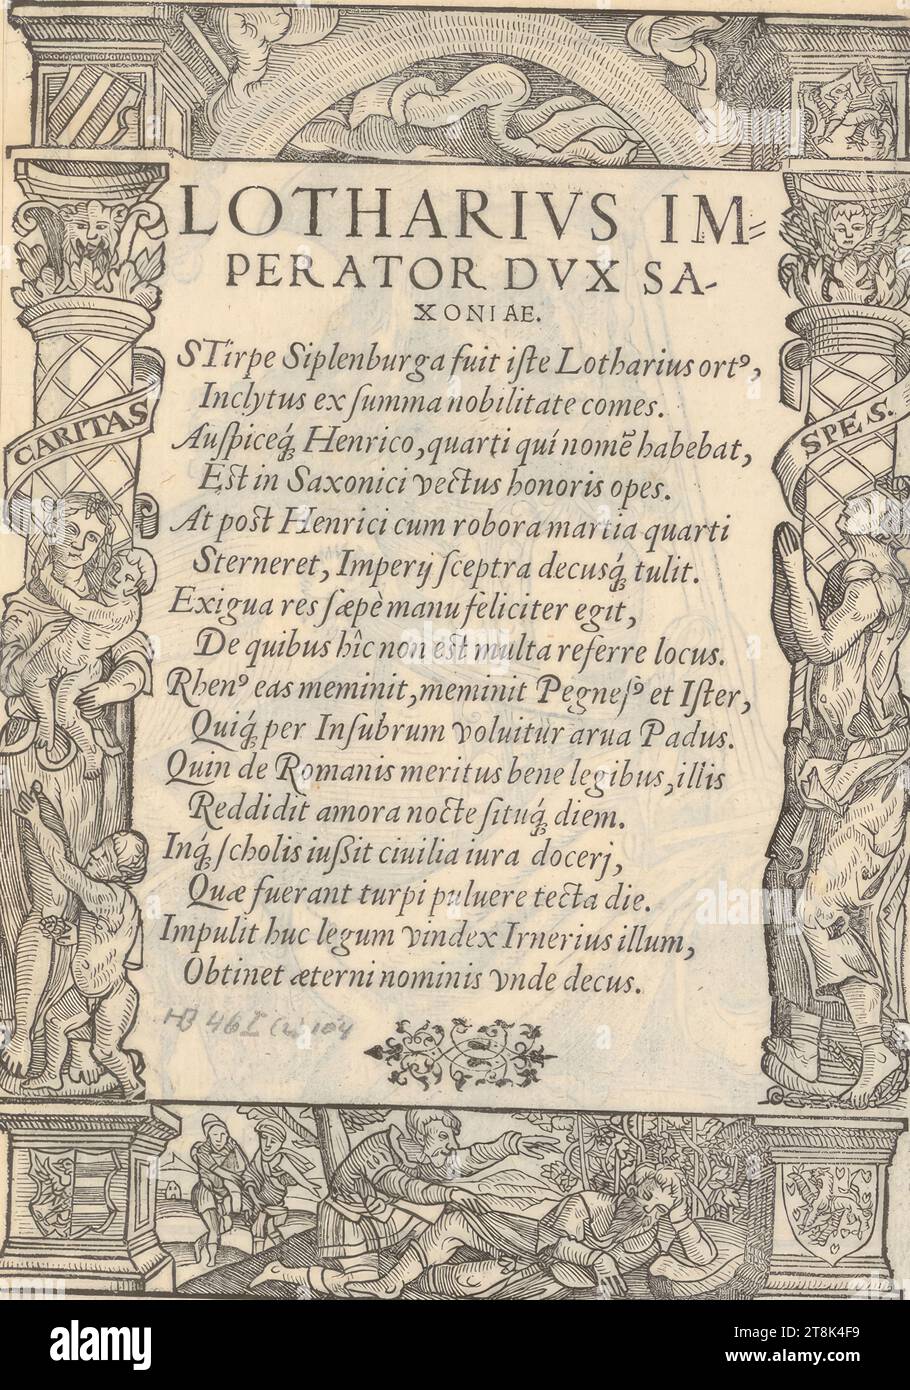 LOTHARIVS IM=
PERATOR DVX SA-
XONIAE.
STirpe Siplenburga fuit iſte Lotharius ortꝰ,
Inclytus ex ſumma nobilitate comes.
Auſpiceq́ꝫ Henrico, quarti quí nomē habebat,
Est in Saxonici vectus honoris opes.
At post Henrici cum robora martia quarti
Sterneret, Imperij ſceptra decusq́ꝫ tulit.
Exigua res ſæpè manu feliciter egit,
De quibus hîc non est multa referre locus.
Rhenꝰ eas meminit, meminit Pegneſꝰ et Iſter,
Quiq́ꝫ per Inſubrum voluitur arua Padus.
Quin de Romanis meritus bene legibus, illis
Reddidit amora nocte ſituq́ꝫ diem.
Inq́ꝫ ſcholis iuſsit ciuilia iura docerj,
Quæ fuerant turpi puluere tecta die.
Impulit huc legum vindex Irnerius illum,
Obtinet æterni nominis vnde decus.
CARITAS
SPES.
HB 46 I (2) 104
alamy
Image ID: 2T8K4F9
www.alamy.com